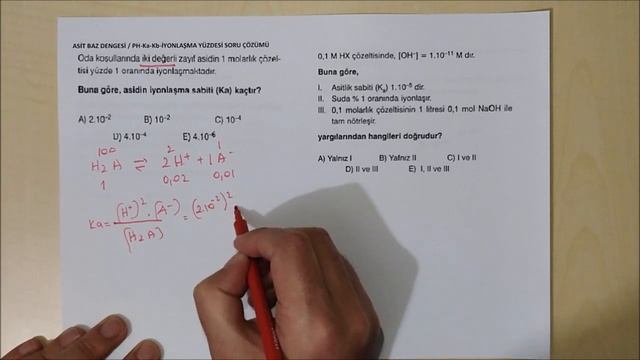 ASİT BAZ DENGESİ / PH-Ka-Kb-İYONLAŞMA YÜZDESİ SORU ÇÖZÜMÜ
Oda koşullarında iki değerli zayıf asidin 1 molarlık çözel-
tisi yüzde 1 oranında iyonlaşmaktadır.
Buna göre, asidin iyonlaşma sabiti (Ka) kaçtır?
A) 2.10⁻² B) 10⁻² C) 10⁻⁴
D) 4.10⁻⁴ E) 4.10⁻⁶
100 2 1
H₂A ⇌ 2H⁺ + 1A⁻
1 0,02 0,01
Ka = [H⁺]² . [A⁻] / [H₂A] = (2.10⁻²)²
0,1 M HX çözeltisinde, [OH⁻] = 1.10⁻¹¹ M dır.
Buna göre,
I. Asitlik sabiti (Kₐ) 1.10⁻⁵ dir.
II. Suda % 1 oranında iyonlaşır.
III. 0,1 molarlık çözeltisinin 1 litresi 0,1 mol NaOH ile
tam nötrleşir.
yargılarından hangileri doğrudur?
A) Yalnız I B) Yalnız II C) I ve II
D) II ve III E) I, II ve III